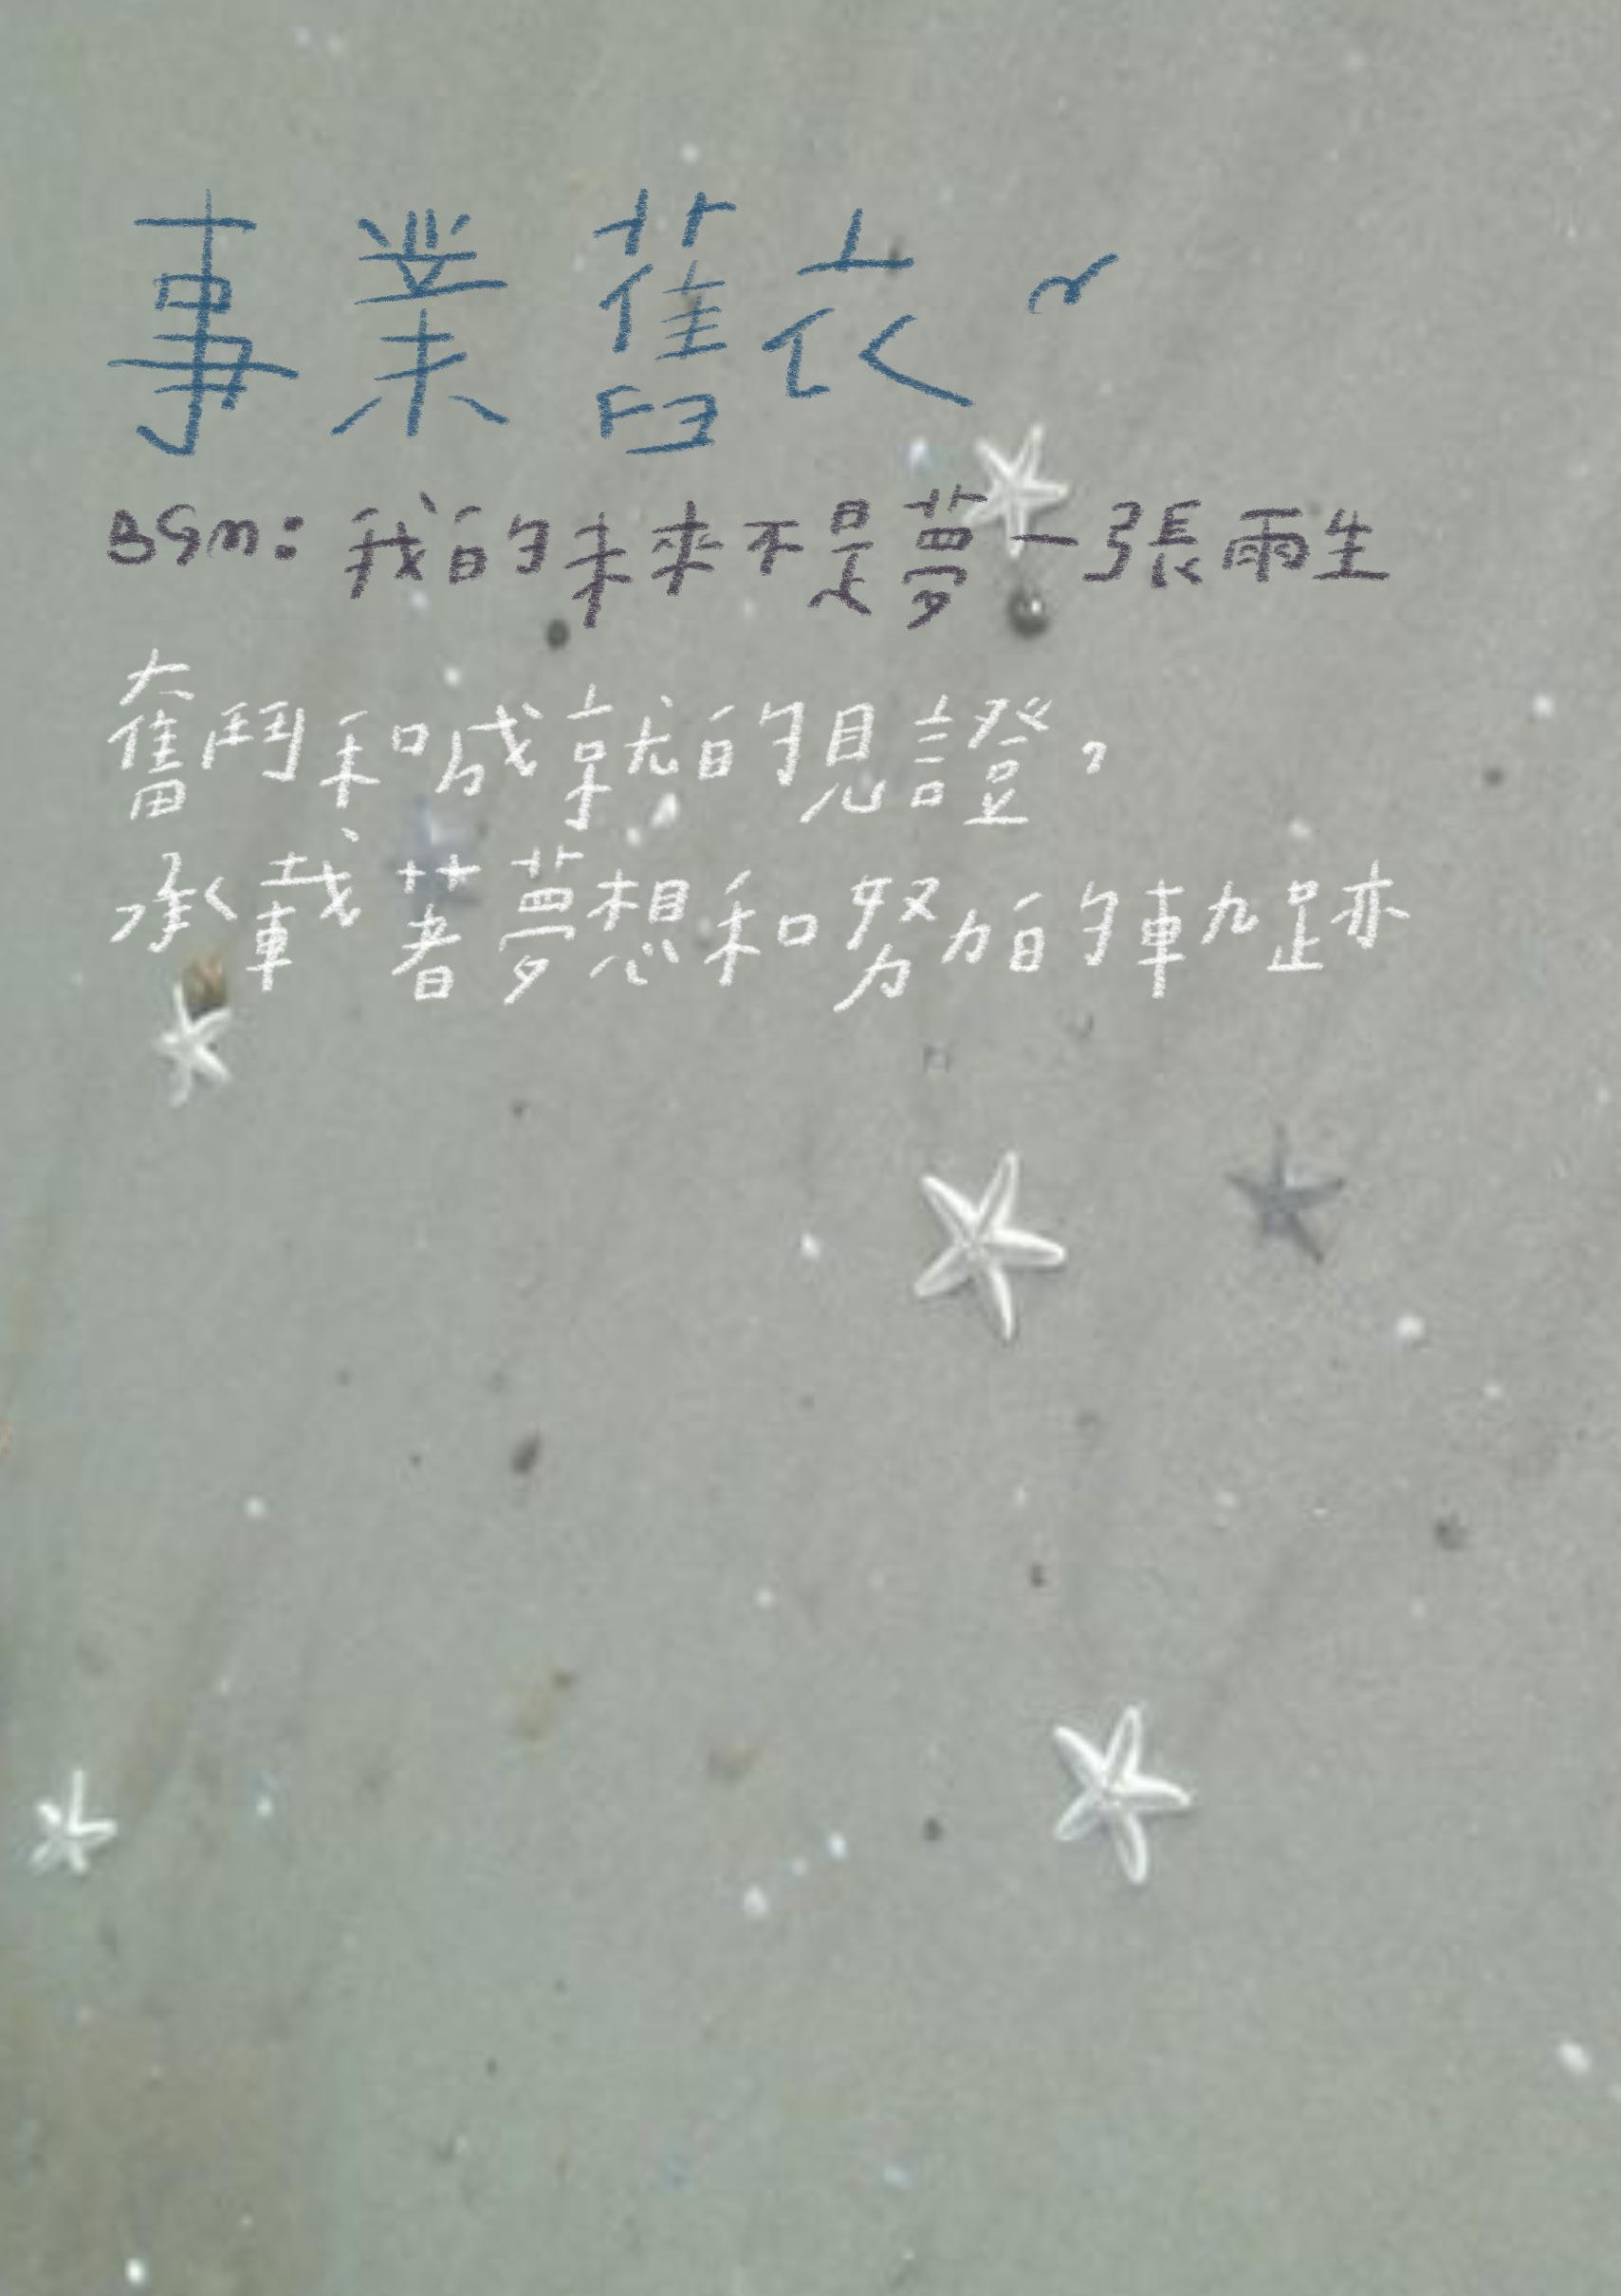 事業舊衣~
BGM：我的未來不是夢—張雨生
奮鬥和成就的見證，
承載著夢想和努力的軌跡